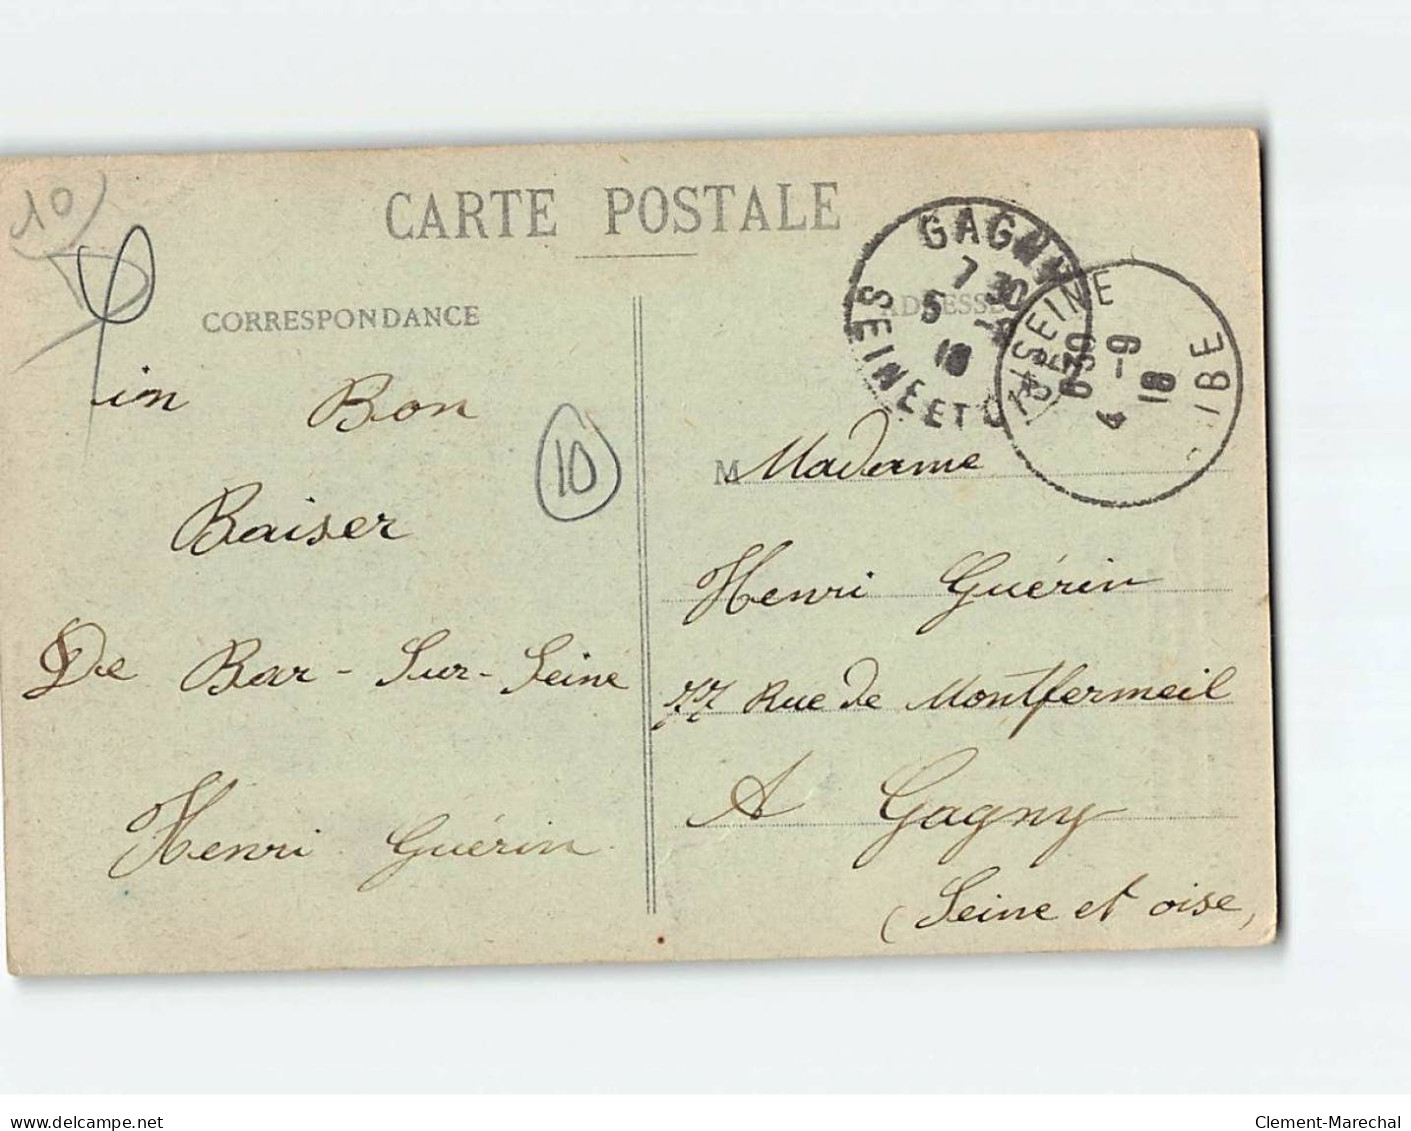 10
CARTE POSTALE
CORRESPONDANCE
ADRESSE
GAGNY
7 30
5 -9
18
SEINE ET O
SEINE
630
4 -9
18
UBE
in Bon
Baiser
De Bar-Sur-Seine
Henri Guérin
10
M Madame
Henri Guérin
77 Rue de Montfermeil
A Gagny
(Seine et oise,
delcampe.net
Clement-Marechal